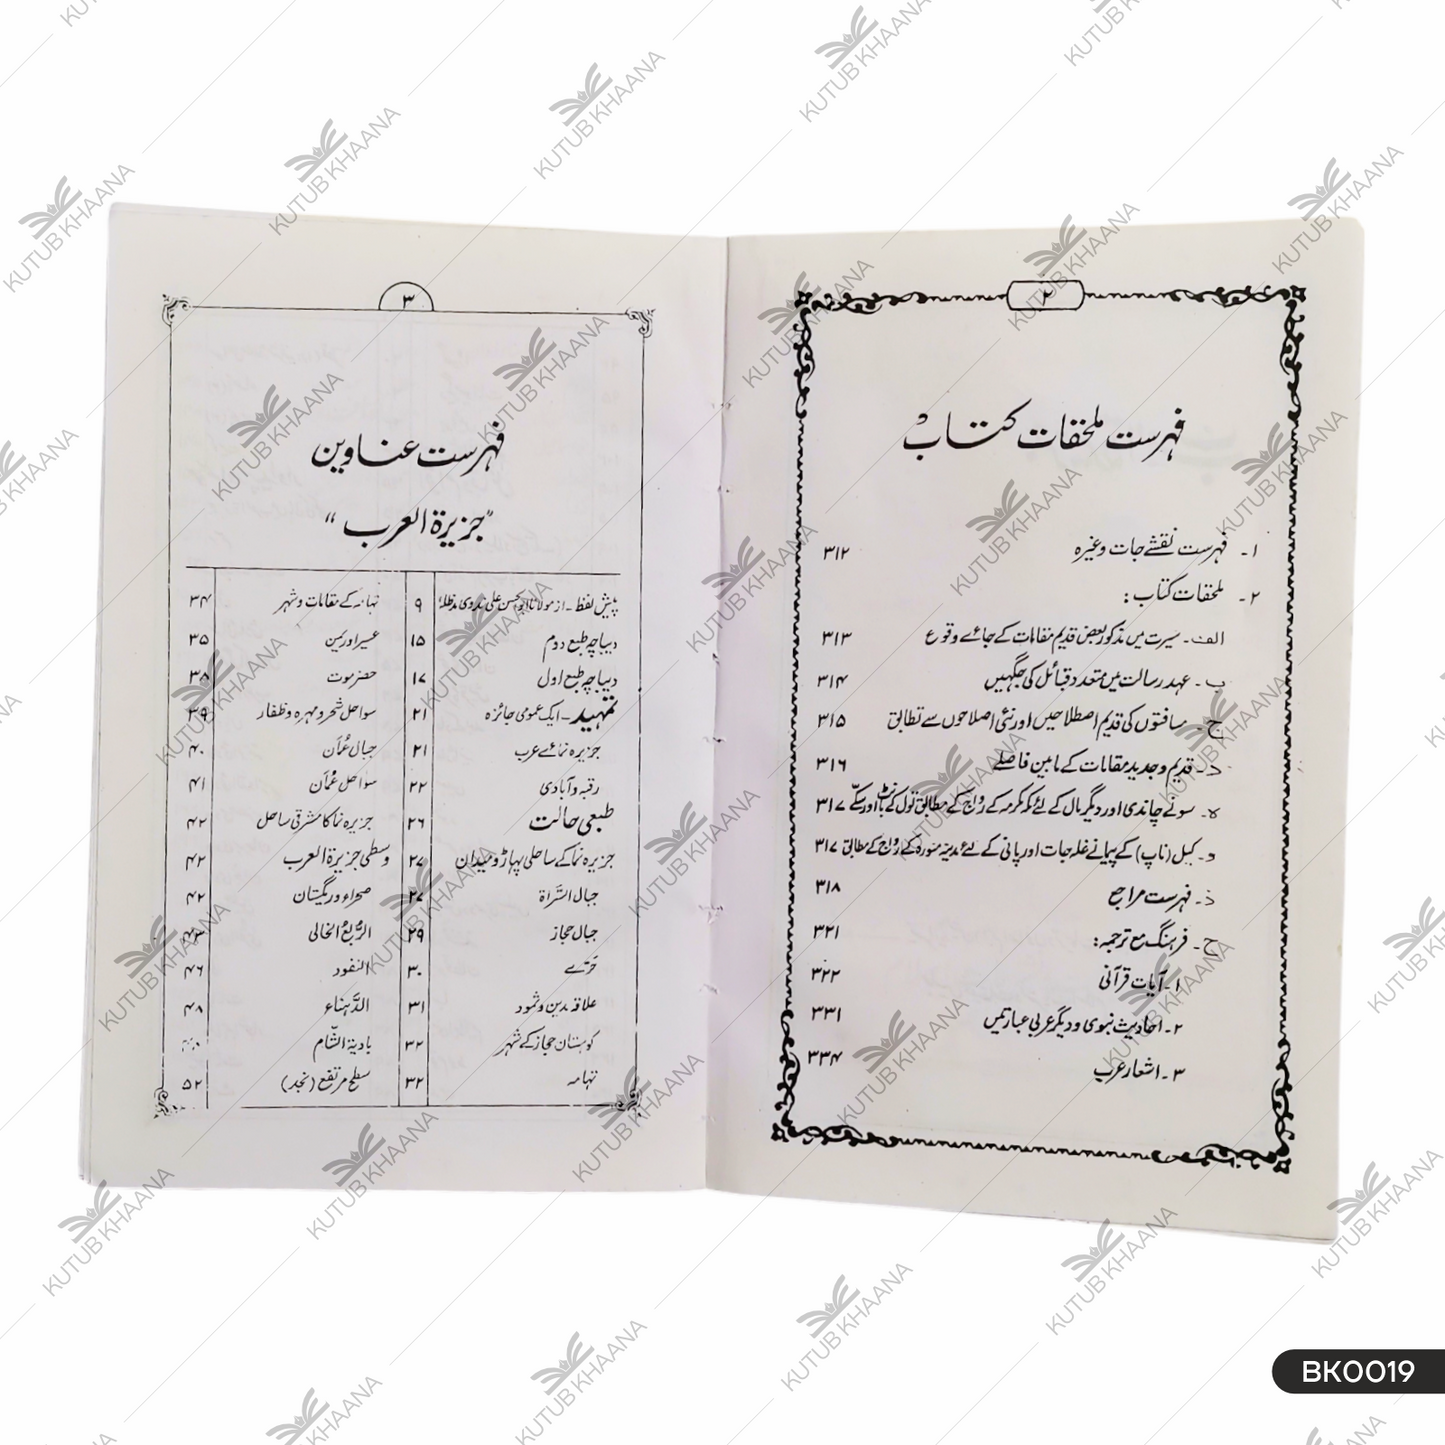 ۲
فہرست ملحقات کتاب
۱۔ فہرست نقشے جات وغیرہ ۳۱۲
۲۔ ملحقات کتاب:
الف۔ سیرت میں مذکور بعض قدیم مقامات کے جائے وقوع ۳۱۳
ب۔ عہد رسالت میں متعدد قبائل کی جگہیں ۳۱۴
ج۔ مسافتوں کی قدیم اصطلاحیں اور نئی اصلاحوں سے تطابق ۳۱۵
د۔ قدیم و جدید مقامات کے مابین فاصلے ۳۱۶
ہ۔ سونے چاندی اور دیگر مال کے لئے مکہ مکرمہ کے رواج کے مطابق تول کے بٹ اور سکے ۳۱۷
و۔ کیل (ناپ) کے پیمانے غلہ جات اور پانی کے لئے مدینہ منورہ کے رواج کے مطابق ۳۱۷
ذ۔ فہرست مراجع ۳۱۸
ح۔ فرہنگ مع ترجمہ: ۳۲۱
۱۔ آیات قرآنی ۳۲۲
۲۔ احادیث نبوی و دیگر عربی عبارتیں ۳۳۱
۳۔ اشعار عرب ۳۳۴
۳
فہرست عناوین
”جزیرۃ العرب“
پیش لفظ۔ از مولانا ابوالحسن علی ندوی مدظلہ ۹
دیباچہ طبع دوم ۱۵
دیباچہ طبع اول ۱۷
تمہید۔ ایک عمومی جائزہ ۲۱
جزیرہ نمائے عرب ۲۱
رقبہ و آبادی ۲۲
طبعی حالت ۲۶
جزیرہ نما کے ساحلی پہاڑ و میدان ۲۷
جبال السَّراۃ ۲۷
جبال حجاز ۲۹
حَرّے ۳۰
علاقہ مدین و ثمود ۳۱
کوہستان حجاز کے شہر ۳۲
تہامہ ۳۲
تہامہ کے مقامات و شہر ۳۴
عسیر اور یمن ۳۵
حضرموت ۳۸
سواحل شحر و مہرہ و ظفار ۳۹
جبال عُمان ۴۰
سواحل عُمان ۴۱
جزیرہ نما کا مشرقی ساحل ۴۲
وسطی جزیرۃ العرب ۴۲
صحراء و ریگستان ۴۲
الرُّبعُ الخالی ۴۳
النفود ۴۶
الدَّہناء ۴۸
بادیۃ الشّام
سطح مرتفع (نجد) ۵۲
KUTUB KHAANA
BK0019